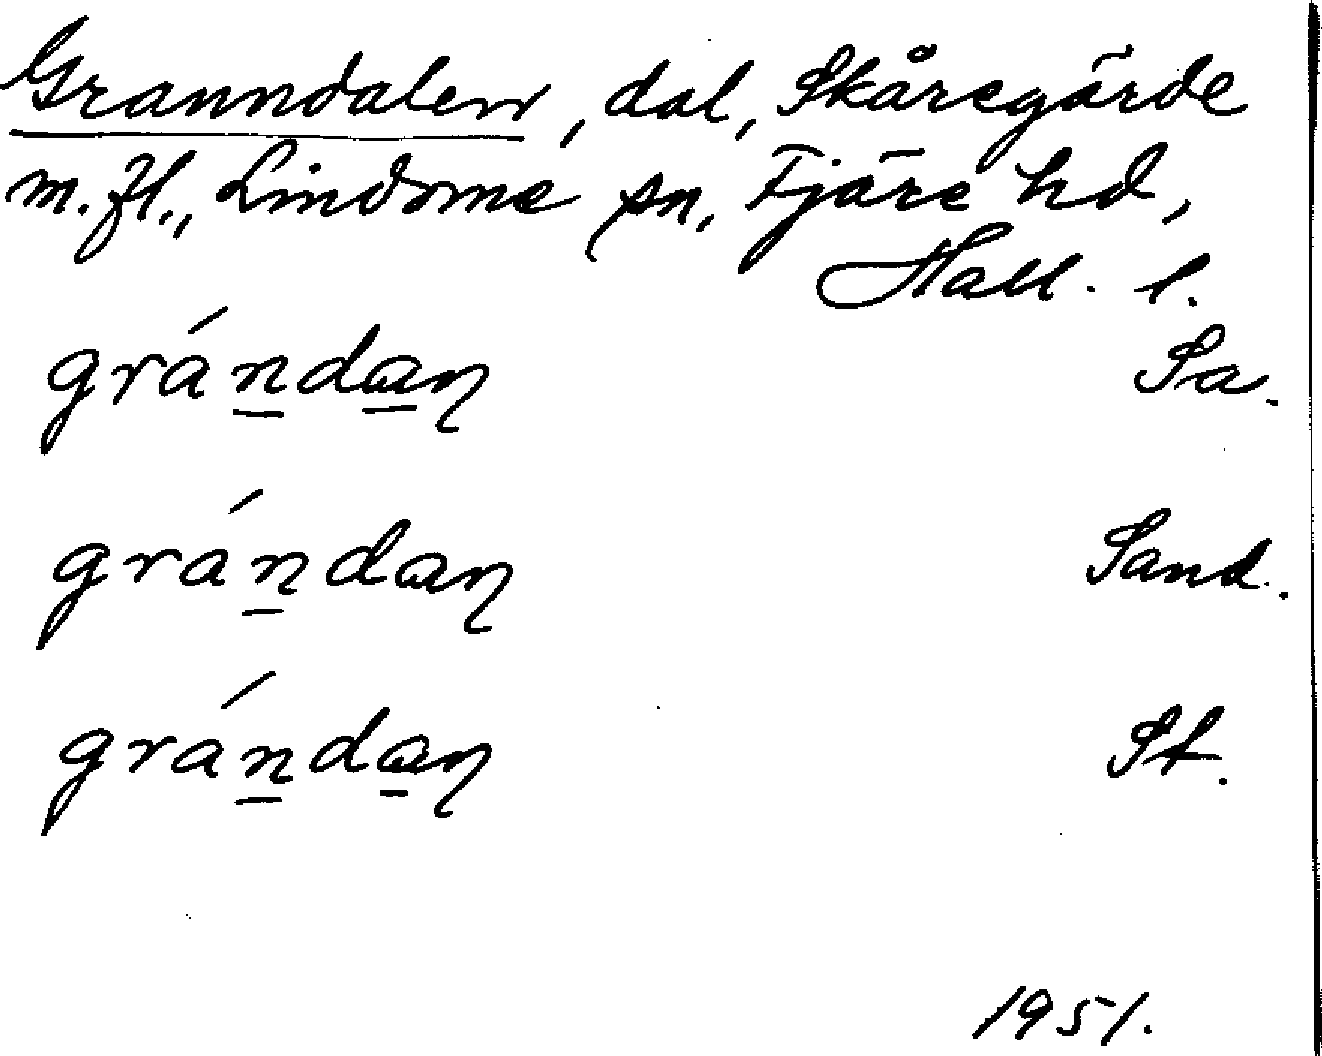 Granndalen, dal, Skåregärde
m. fl., Lindome sn, Fjäre hd,
Hall. l.
grándaɳ Sa.
grándaɳ Sand.
grándaɳ St.
1951.